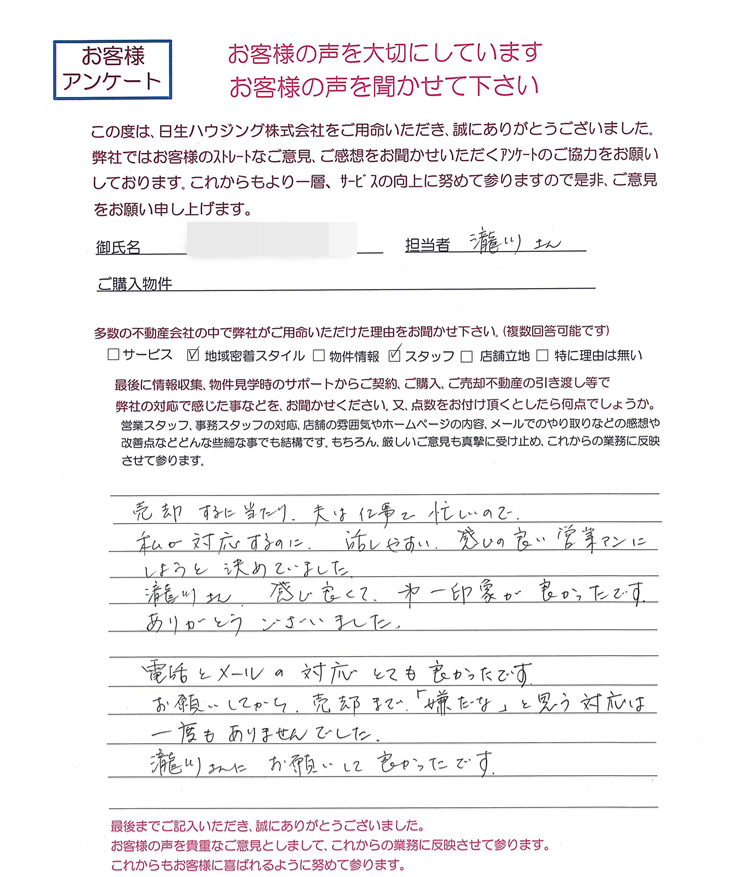 お客様
アンケート
お客様の声を大切にしています
お客様の声を聞かせて下さい
この度は、日生ハウジング株式会社をご用命いただき、誠にありがとうございました。
弊社ではお客様のストレートなご意見、ご感想をお聞かせいただくアンケートのご協力をお願い
しております。これからもより一層、サービスの向上に努めて参りますので是非、ご意見
をお願い申し上げます。
御氏名 担当者 瀧川さん
ご購入物件
多数の不動産会社の中で弊社がご用命いただけた理由をお聞かせ下さい。(複数回答可能です)
□サービス ☑地域密着スタイル □物件情報 ☑スタッフ □店舗立地 □特に理由は無い
最後に情報収集、物件見学時のサポートからご契約、ご購入、ご売却不動産の引き渡し等で
弊社の対応で感じた事などを、お聞かせください。又、点数をお付け頂くとしたら何点でしょうか。
営業スタッフ、事務スタッフの対応、店舗の雰囲気やホームページの内容、メールでのやり取りなどの感想や
改善点などどんな些細な事でも結構です。もちろん、厳しいご意見も真摯に受け止め、これからの業務に反映
させて参ります。
売却するに当たり、夫は仕事で忙しいので、
私が対応するのに、話しやすい、感じの良い営業マンに
しようと決めていました。
瀧川さん、感じ良くて、第一印象が良かったです。
ありがとうございました。
電話とメールの対応とても良かったです。
お願いしてから、売却まで、「嫌だな」と思う対応は
一度もありませんでした。
瀧川さんにお願いして良かったです。
最後までご記入いただき、誠にありがとうございました。
お客様の声を貴重なご意見としまして、これからの業務に反映させて参ります。
これからもお客様に喜ばれるように努めて参ります。